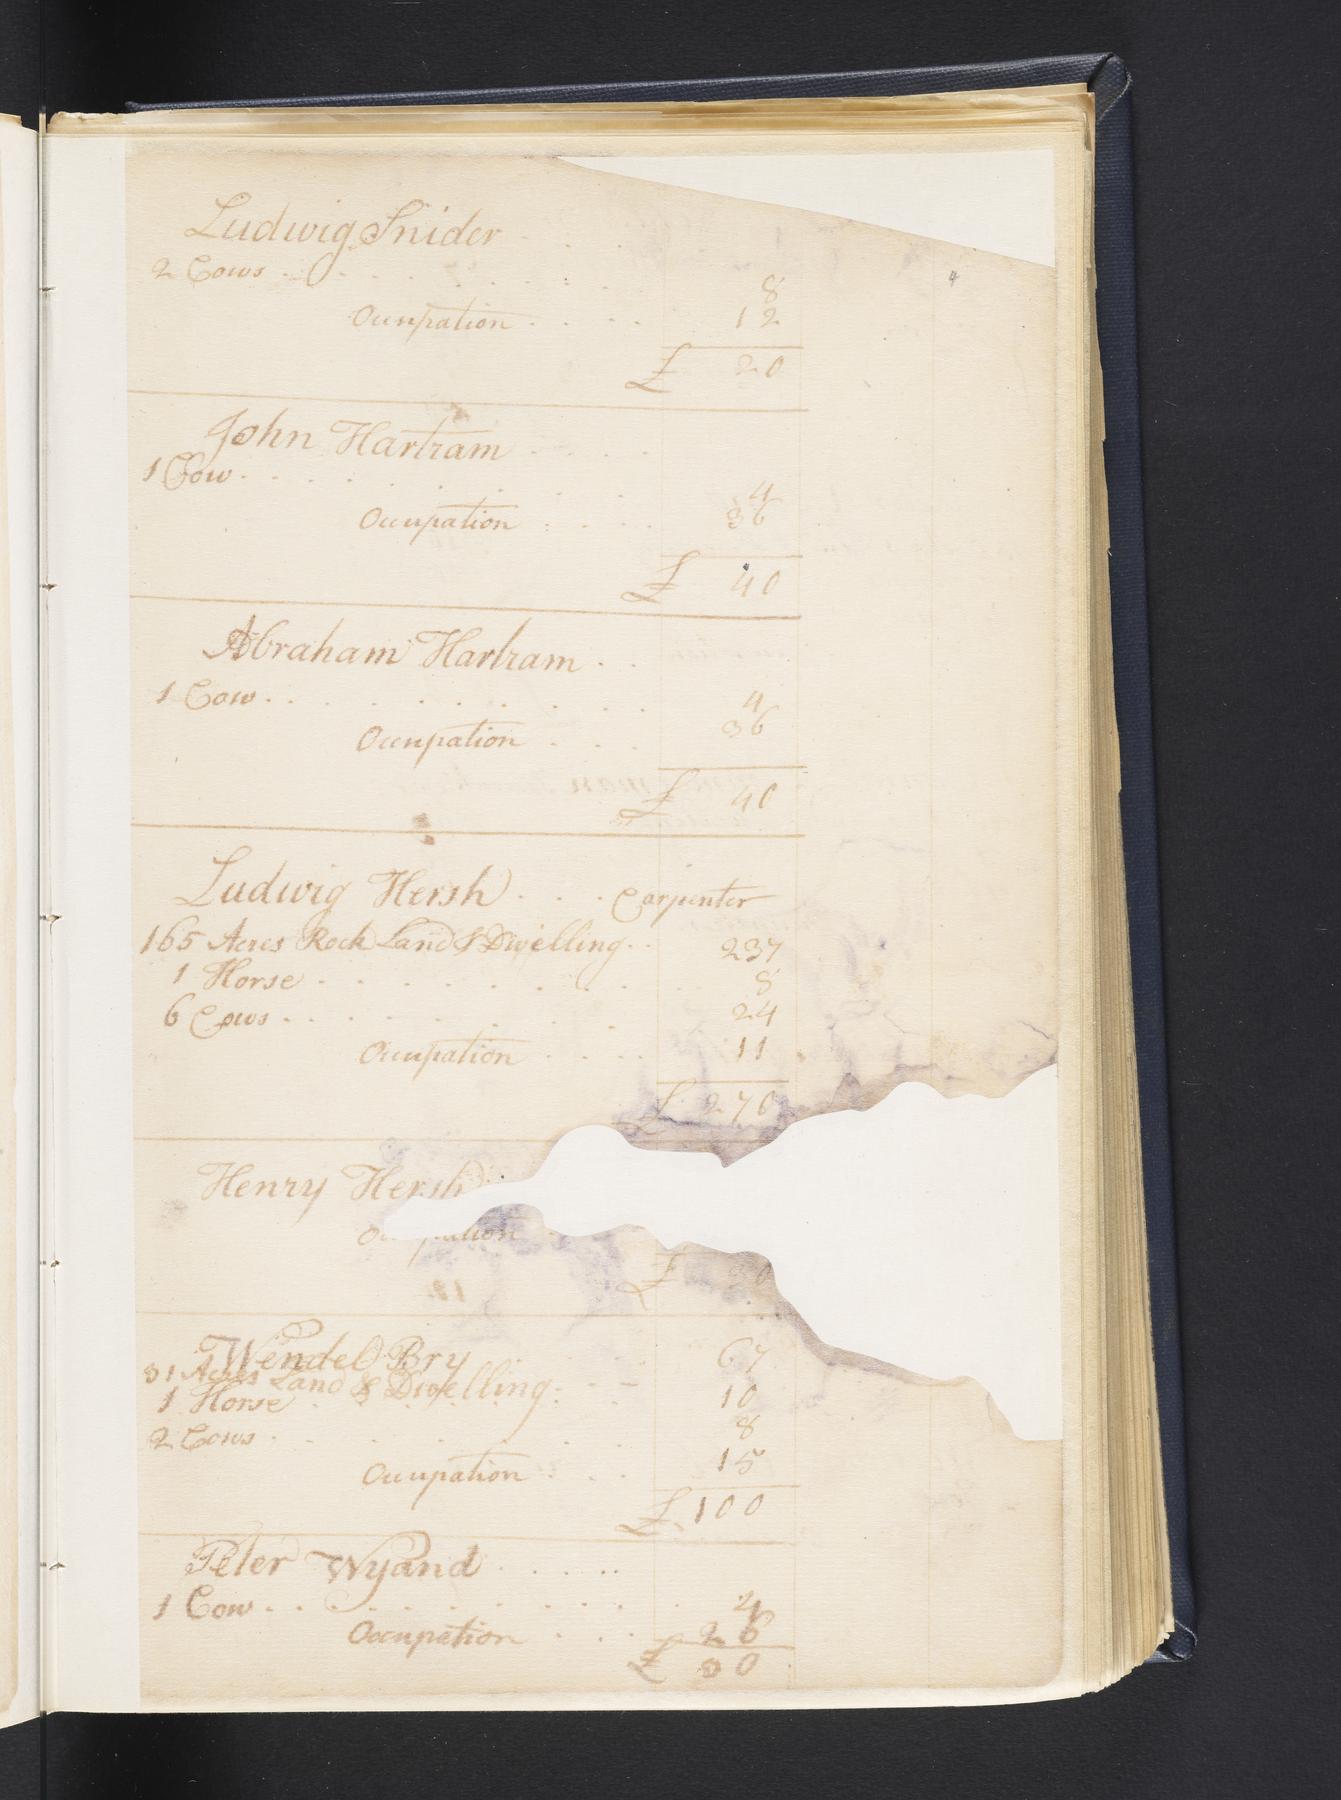 4
Ludwig Snider . . .
2 Cows . . . . . . . . 8
Occupation . . . . 12
£ 20
John Hartram . . . .
1 Cow . . . . . . . . 4
Occupation . . . . 36
£ 40
Abraham Hartram . .
1 Cow . . . . . . . . 4
Occupation . . . 36
£ 40
Ludwig Hersh . . . Carpenter
165 Acres Rock Land & Dwelling . . 237
1 Horse . . . . . . . . 8
6 Cows . . . . . . . 24
Occupation . . . . 11
£ 270
Henry Hersh
£
Wendel Bry
31 Acres Land & Dwelling . . 67
1 Horse . . . . . . 10
2 Cows . . . . . . 8
Occupation . . . 15
£ 100
Peter Wyand . . . . .
1 Cow . . . . . . . . 4
Occupation . . . 26
£ 30